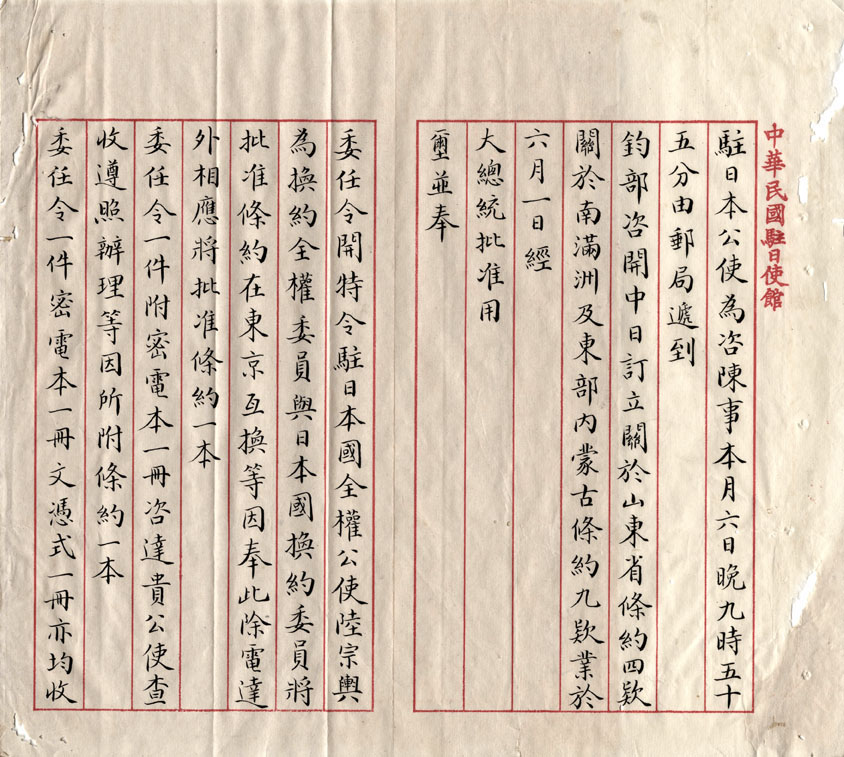 中華民國駐日使館
駐日本公使為咨陳事本月六日晚九時五十
五分由郵局遞到
鈞部咨開中日訂立關於山東省條約四款
關於南滿洲及東部內蒙古條約九款業於
六月一日經
大總統批准用
璽並奉
委任令開特令駐日本國全權公使陸宗輿
為換約全權委員與日本國換約委員將
批准條約在東京互換等因奉此除電達
外相應將批准條約一本
委任令一件附密電本一冊咨達貴公使查
收遵照辦理等因所附條約一本
委任令一件密電本一冊文憑式一冊亦均收